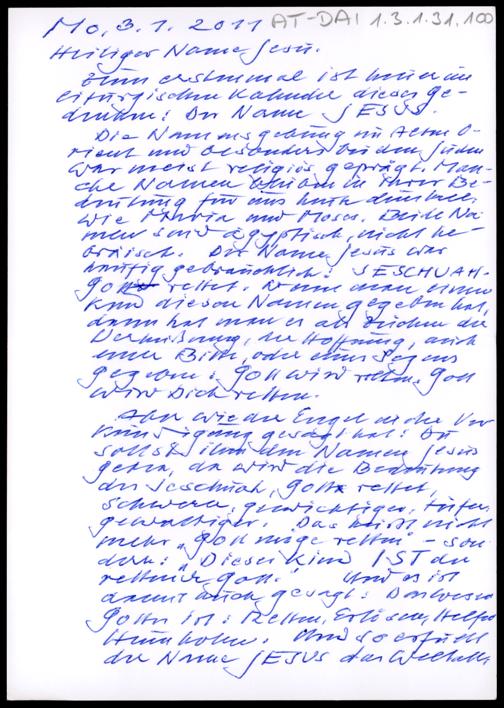 Mo, 3.1.2011 AT-DA! 1.3.1.31.100
Heiliger Name Jesu.
Zum erstenmal ist heuer im
liturgischen Kalender dieses Ge-
denken: Der Name JESUS.
Die Namensgebung im Alten O-
rient und besonders bei den Juden
war meist religiös geprägt. Man-
che Namen bleiben in ihrer Be-
deutung für uns heute dunkel,
wie Maria und Moses. Beide Na-
men sind ägyptisch, nicht he-
bräisch. Der Name Jesus war
häufig gebräuchlich: JESCHUAH -
Gott rettet. Wenn man einem
Kind diesen Namen gegeben hat,
dann hat man es als Zeichen der
Verheißung, der Hoffnung, auch
einer Bitte, oder eines Segens
gegeben: Gott wird retten, Gott
wird Dich retten.
Aber wie der Engel bei der Ver
kündigung gesagt hat: Du
sollst ihm den Namen Jesus
geben, da wird die Bedeutung
des Jeschuah, Gott rettet,
schwerer, gewichtiger, tiefer,
gewaltiger. Das heißt nicht
mehr „Gott möge retten" - son
dern: „Dieses Kind IST der
rettende Gott." Und es ist
damit auch gesagt: Das Wesen
Gottes ist: Retten, Erlösen, Helfen
Heimholen. Und so erfüllt
der Name JESUS das Weltall.